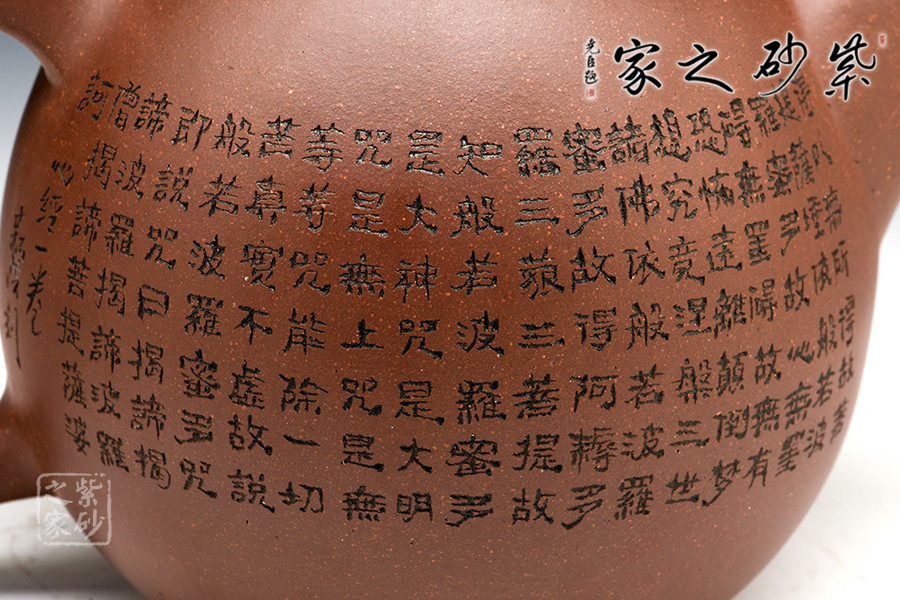 紫砂之家
得以無所得故菩
提薩埵依般若波
羅蜜多故心無罣
得無罣得故無有
恐怖遠離顛倒梦
想究竟涅槃三世
諸佛依般若波羅
蜜多故得阿耨多
羅三藐三若提故
知般若波羅蜜多
是大神咒是大明
咒是無上咒是無
等等咒能除一切
苦真實不虛故説
般若波羅蜜多咒
即説咒曰揭諦揭
諦波羅揭諦波羅
僧揭諦菩提薩婆
訶
心經一卷
紫砂之家